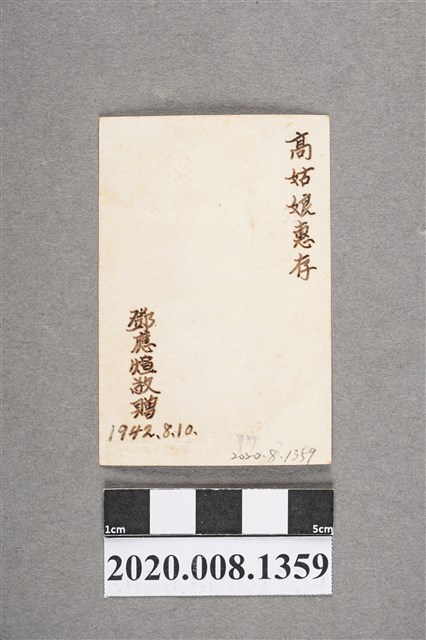 高姑娘惠存
鄧應煊敬贈
1942.8.10.
2020.8.1359
1cm
5cm
2020.008.1359